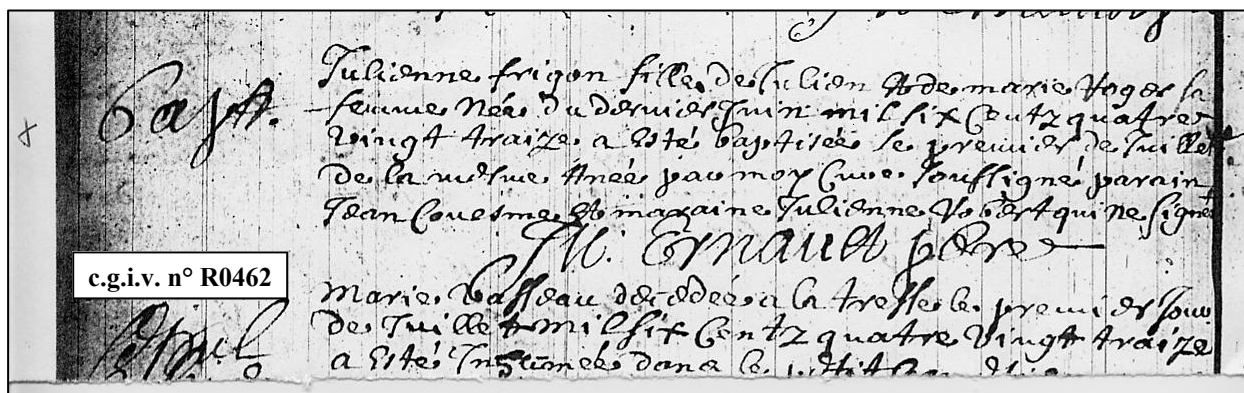 Bapt.
Julienne frigon fille de Julien & de marie Roger sa
femme Née du dernier Juin mil six Centz quatre
Vingt traize a Esté baptisée le premier de Juillet
de la mesme Année par moy Curé soussigné parain
Jean Couesme & maraine Julienne Robert qui ne signe
M. Ernault pbre
c.g.i.v. n° R0462
Marie Basseau décédée a la tresse le premier Jour
de Juillet mil six Centz quatre Vingt traize
a Esté Inhumée dans le